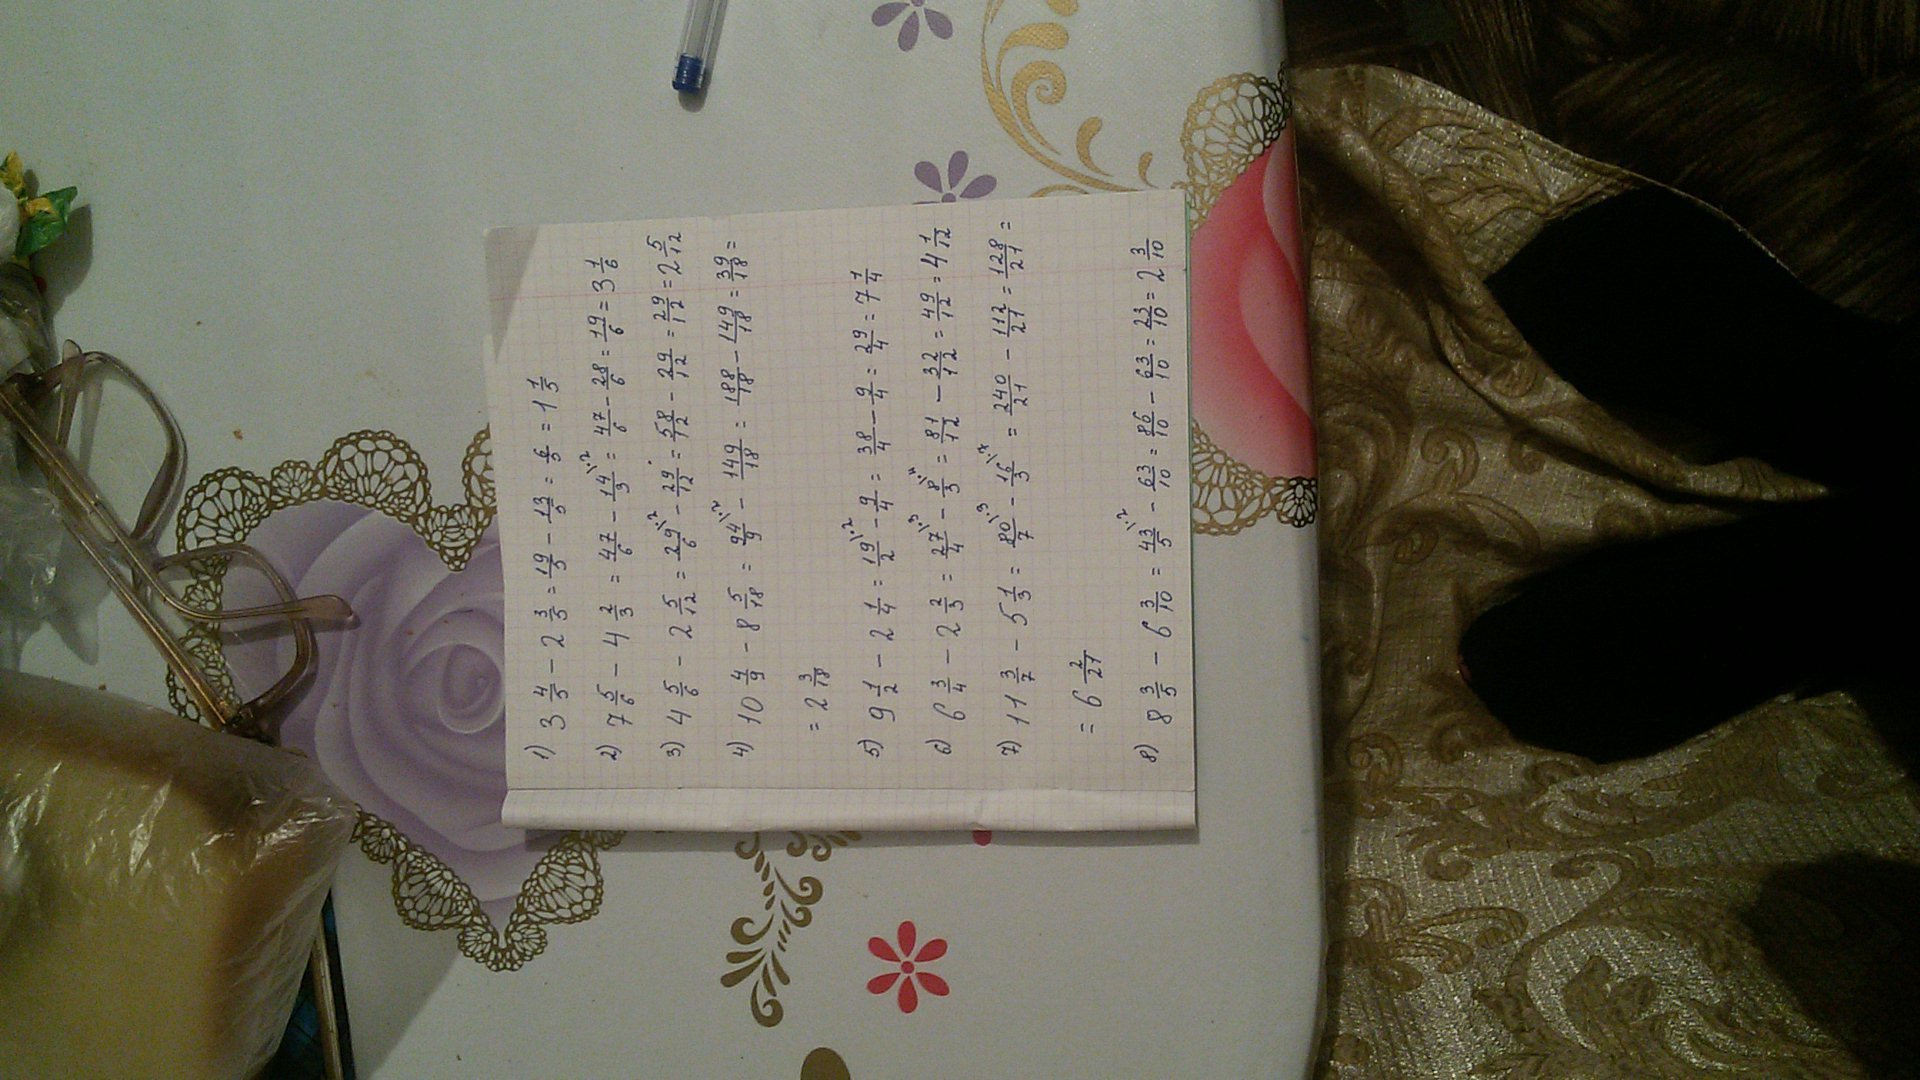 1) 3 4/5 − 2 3/5 = 19/5 − 13/5 = 6/5 = 1 1/5
2) 7 5/6 − 4 2/3 = 47/6 − 14/3 |·2 = 47/6 − 28/6 = 19/6 = 3 1/6
3) 4 5/6 − 2 5/12 = 29/6 |·2 − 29/12 = 58/12 − 29/12 = 29/12 = 2 5/12
4) 10 4/9 − 8 5/18 = 94/9 |·2 − 149/18 = 188/18 − 149/18 = 39/18 =
= 2 3/18
5) 9 1/2 − 2 1/4 = 19/2 |·2 − 9/4 = 38/4 − 9/4 = 29/4 = 7 1/4
6) 6 3/4 − 2 2/3 = 27/4 |·3 − 8/3 |·4 = 81/12 − 32/12 = 49/12 = 4 1/12
7) 11 3/7 − 5 1/3 = 80/7 |·3 − 16/3 |·7 = 240/21 − 112/21 = 128/21 =
= 6 2/21
8) 8 3/5 − 6 3/10 = 43/5 |·2 − 63/10 = 86/10 − 63/10 = 23/10 = 2 3/10